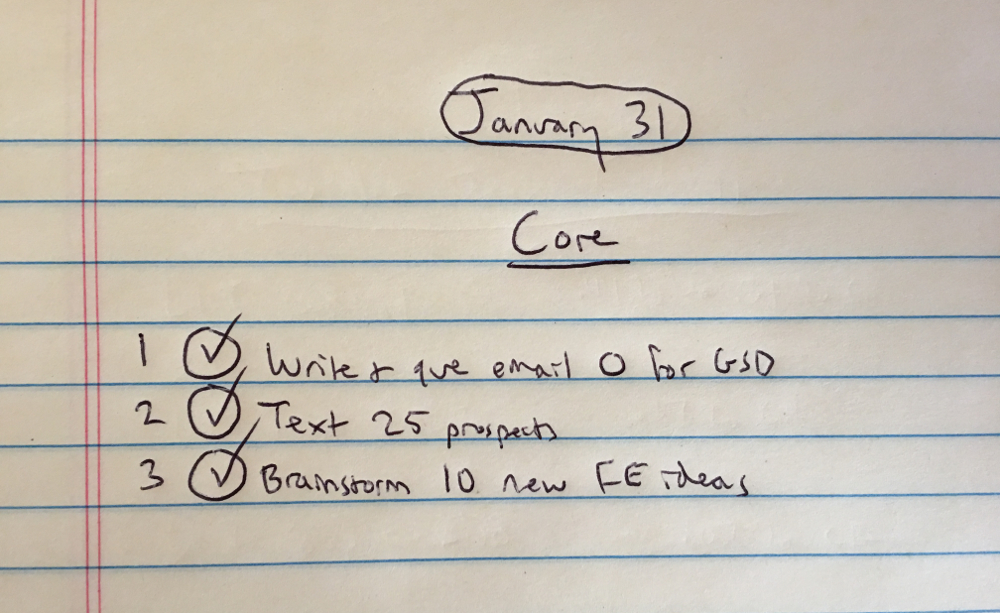 January 31
Core
1 ✓ Write & que email 0 for GSD
2 ✓ Text 25 prospects
3 ✓ Brainstorm 10 new FE ideas